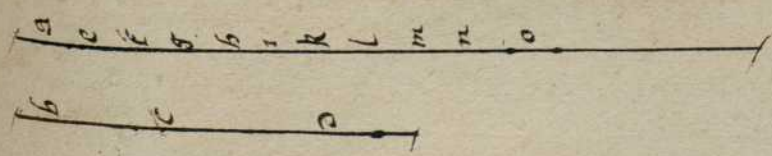 a e f g h i k l m n o
b c d